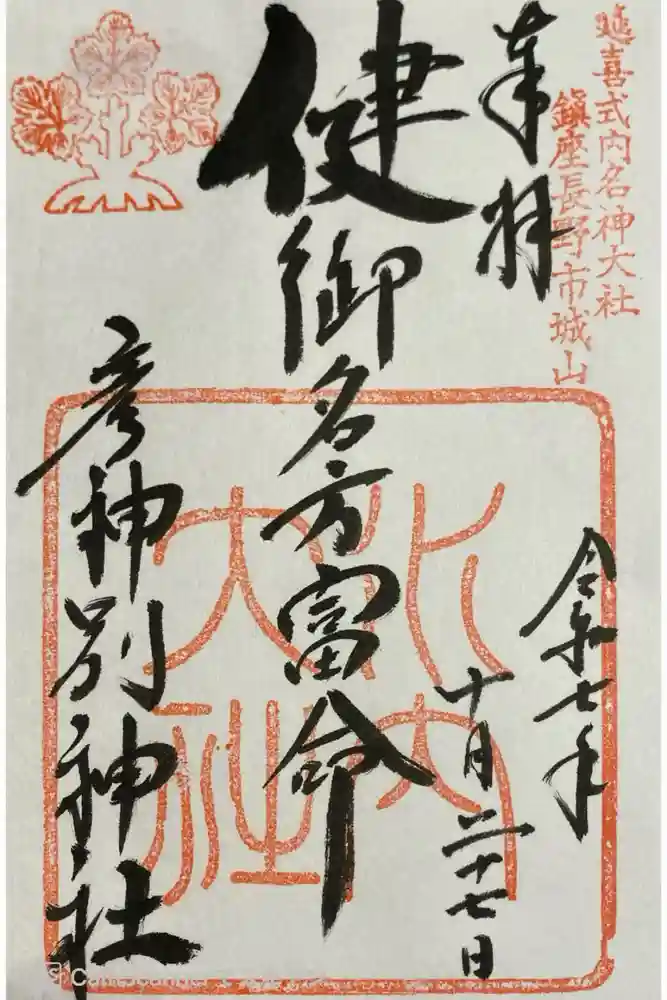 延喜式内名神大社
鎭座長野市城山
奉拝
令和七年
十月二十七日
健御名方富命
彦神別神社
水内
大社
CamScanner